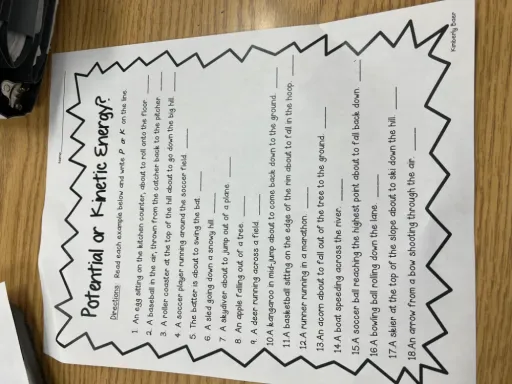 Name
Potential or Kinetic Energy?
Directions: Read each example below and write P or K on the line.
1. An egg sitting on the kitchen counter, about to roll onto the floor.
2. A baseball in the air, thrown from the catcher back to the pitcher.
3. A roller coaster at the top of the hill about to go down the big hill.
4. A soccer player running around the soccer field.
5. The batter is about to swing the bat.
6. A sled going down a snowy hill.
7. A skydiver about to jump out of a plane.
8. An apple falling out of a tree.
9. A deer running across a field.
10. A kangaroo in mid-jump about to come back down to the ground.
11. A basketball sitting on the edge of the rim about to fall in the hoop.
12. A runner running in a marathon.
13. An acorn about to fall out of the tree to the ground.
14. A boat speeding across the river.
15. A soccer ball reaching the highest point about to fall back down.
16. A bowling ball rolling down the lane.
17. A skier at the top of the slope about to ski down the hill.
18. An arrow from a bow shooting through the air.
Kimberly Baer